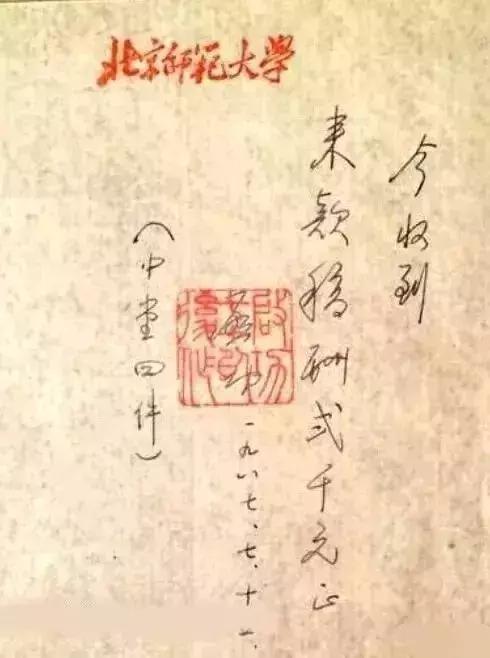 北京师范大学
今收到
来款稿酬贰千元正
启功
一九八七、七、十一、
（中堂四件）